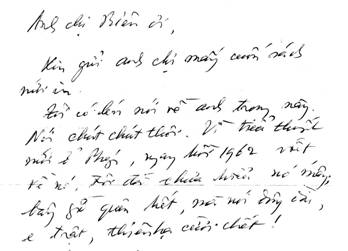 Anh chị Biên ơi,
Xin gửi anh chị mấy cuốn sách
mới in.
Tôi có lén nói về anh trong này.
Nói chút chút thôi. Vì tiểu thuyết
mới ở Pháp, ngay hồi 1962 viết
về nó, tôi đã chưa hiểu nó mấy,
bây giờ quên hết, mà nói dông dài,
e trật, thiên hạ cười chết!